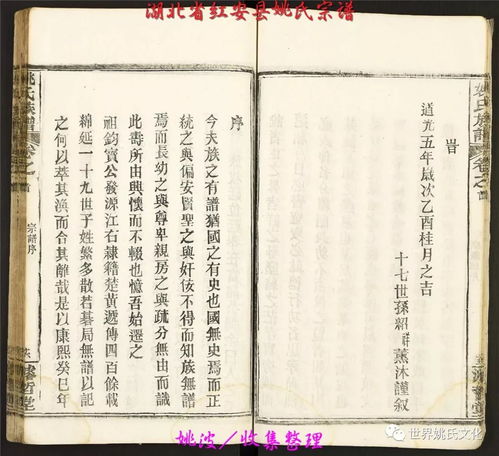 湖北省红安县姚氏宗谱
旹
道光五年歲次乙酉桂月之吉
十七世孫紹祥薰沐謹叙
序
今夫族之有譜猶國之有史也國無史焉而正
統之與偏安賢聖之與奸佞不得而知族無譜
焉而長幼之與尊卑親房之與疏分無由而識
此壽所由興懷而不輟也憶吾始遷之
祖鈞寳公發源江右隸籍楚黃遞傳四百餘載
綿延一十九世子姓繁多散若碁局無譜以記
之何以萃其渙而合其離哉是以康熙癸巳年
姚氏族譜
卷之首
宗譜序
姚氏族譜
卷之首
姚波/收集整理
世界姚氏文化